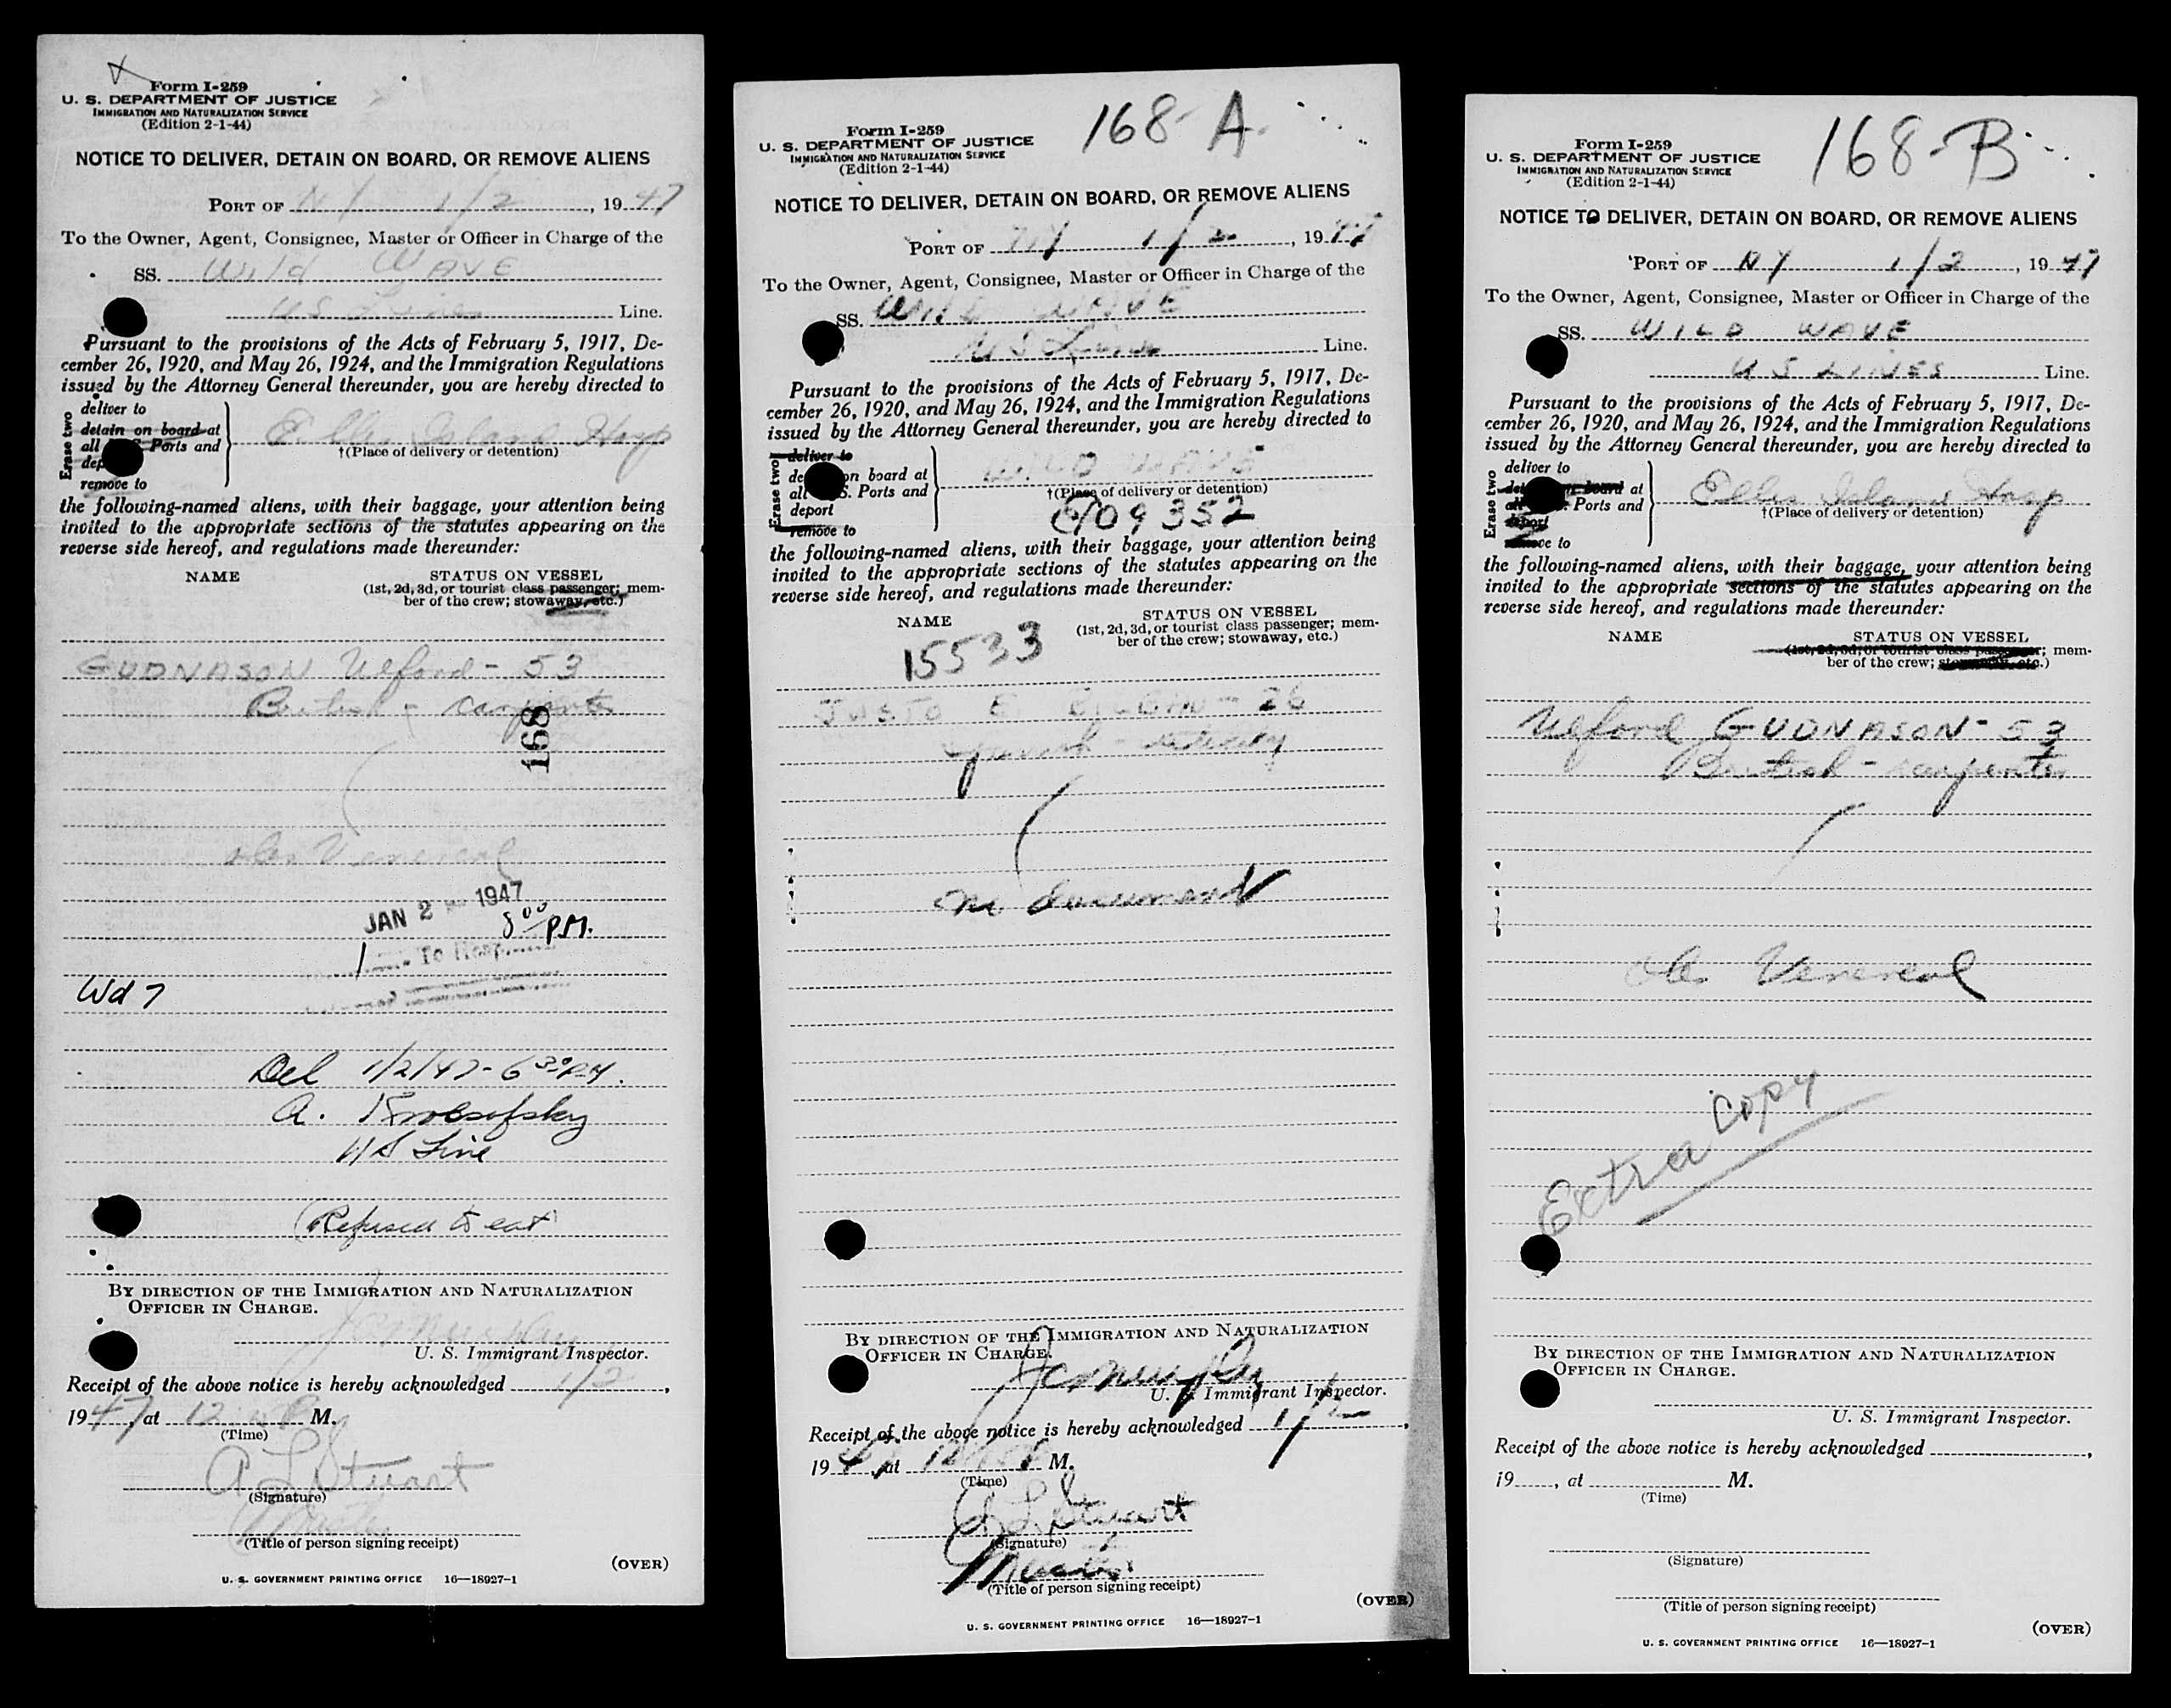 Form I-259
U. S. DEPARTMENT OF JUSTICE
IMMIGRATION AND NATURALIZATION SERVICE
(Edition 2-1-44)
NOTICE TO DELIVER, DETAIN ON BOARD, OR REMOVE ALIENS
PORT OF NY 1/2, 1947
To the Owner, Agent, Consignee, Master or Officer in Charge of the
SS. Wild WAVE
US Lines Line.
Pursuant to the provisions of the Acts of February 5, 1917, De-
cember 26, 1920, and May 26, 1924, and the Immigration Regulations
issued by the Attorney General thereunder, you are hereby directed to
Erase two
deliver to
detain on board at
all Ports and
remove to
Ellis Island Hosp
†(Place of delivery or detention)
the following-named aliens, with their baggage, your attention being
invited to the appropriate sections of the statutes appearing on the
reverse side hereof, and regulations made thereunder:
NAME STATUS ON VESSEL
(1st, 2d, 3d, or tourist class passenger; mem-
ber of the crew; stowaway, etc.)
GUDNASON Ulford - 53
British - carpenter
168
Venereal
JAN 2 1947
8 00 P.M.
1 To Hosp.
Wd 7
Del 1/2/47 - 6 30 PM.
A.
US Line
(Refused to eat)
BY DIRECTION OF THE IMMIGRATION AND NATURALIZATION
OFFICER IN CHARGE.
JC Murphy
U. S. Immigrant Inspector.
Receipt of the above notice is hereby acknowledged 1/2,
1947, at 12 M.
(Time)
A L Stuart
(Signature)
Master
(Title of person signing receipt)
(OVER)
U. S. GOVERNMENT PRINTING OFFICE 16—18927-1
168-A
Form I-259
U. S. DEPARTMENT OF JUSTICE
IMMIGRATION AND NATURALIZATION SERVICE
(Edition 2-1-44)
NOTICE TO DELIVER, DETAIN ON BOARD, OR REMOVE ALIENS
PORT OF NY 1/2, 1947
To the Owner, Agent, Consignee, Master or Officer in Charge of the
SS. WILD WAVE
US Line Line.
Pursuant to the provisions of the Acts of February 5, 1917, De-
cember 26, 1920, and May 26, 1924, and the Immigration Regulations
issued by the Attorney General thereunder, you are hereby directed to
Erase two
deliver to
on board at
S. Ports and
deport
remove to
WILD WAVE
†(Place of delivery or detention)
09352
the following-named aliens, with their baggage, your attention being
invited to the appropriate sections of the statutes appearing on the
reverse side hereof, and regulations made thereunder:
NAME STATUS ON VESSEL
(1st, 2d, 3d, or tourist class passenger; mem-
ber of the crew; stowaway, etc.)
15533
JUSTO E - 26
Spanish -
no documents
BY DIRECTION OF THE IMMIGRATION AND NATURALIZATION
OFFICER IN CHARGE.
JC Murphy
U. S. Immigrant Inspector.
Receipt of the above notice is hereby acknowledged 1/2,
1947, at 12 M.
(Time)
A L Stuart
(Signature)
Master
(Title of person signing receipt)
(OVER)
U. S. GOVERNMENT PRINTING OFFICE 16—18927-1
168-B
Form I-259
U. S. DEPARTMENT OF JUSTICE
IMMIGRATION AND NATURALIZATION SERVICE
(Edition 2-1-44)
NOTICE TO DELIVER, DETAIN ON BOARD, OR REMOVE ALIENS
PORT OF NY 1/2, 1947
To the Owner, Agent, Consignee, Master or Officer in Charge of the
SS. WILD WAVE
US LINES Line.
Pursuant to the provisions of the Acts of February 5, 1917, De-
cember 26, 1920, and May 26, 1924, and the Immigration Regulations
issued by the Attorney General thereunder, you are hereby directed to
Erase two
deliver to
board at
Ports and
deport
remove to
Ellis Island Hosp
†(Place of delivery or detention)
the following-named aliens, with their baggage, your attention being
invited to the appropriate sections of the statutes appearing on the
reverse side hereof, and regulations made thereunder:
NAME STATUS ON VESSEL
(1st, 2d, 3d, or tourist class passenger; mem-
ber of the crew; stowaway, etc.)
Ulford GUDNASON - 53
British - carpenter
Venereal
Extra Copy
BY DIRECTION OF THE IMMIGRATION AND NATURALIZATION
OFFICER IN CHARGE.
U. S. Immigrant Inspector.
Receipt of the above notice is hereby acknowledged ,
19 , at M.
(Time)
(Signature)
(Title of person signing receipt)
(OVER)
U. S. GOVERNMENT PRINTING OFFICE 16—18927-1